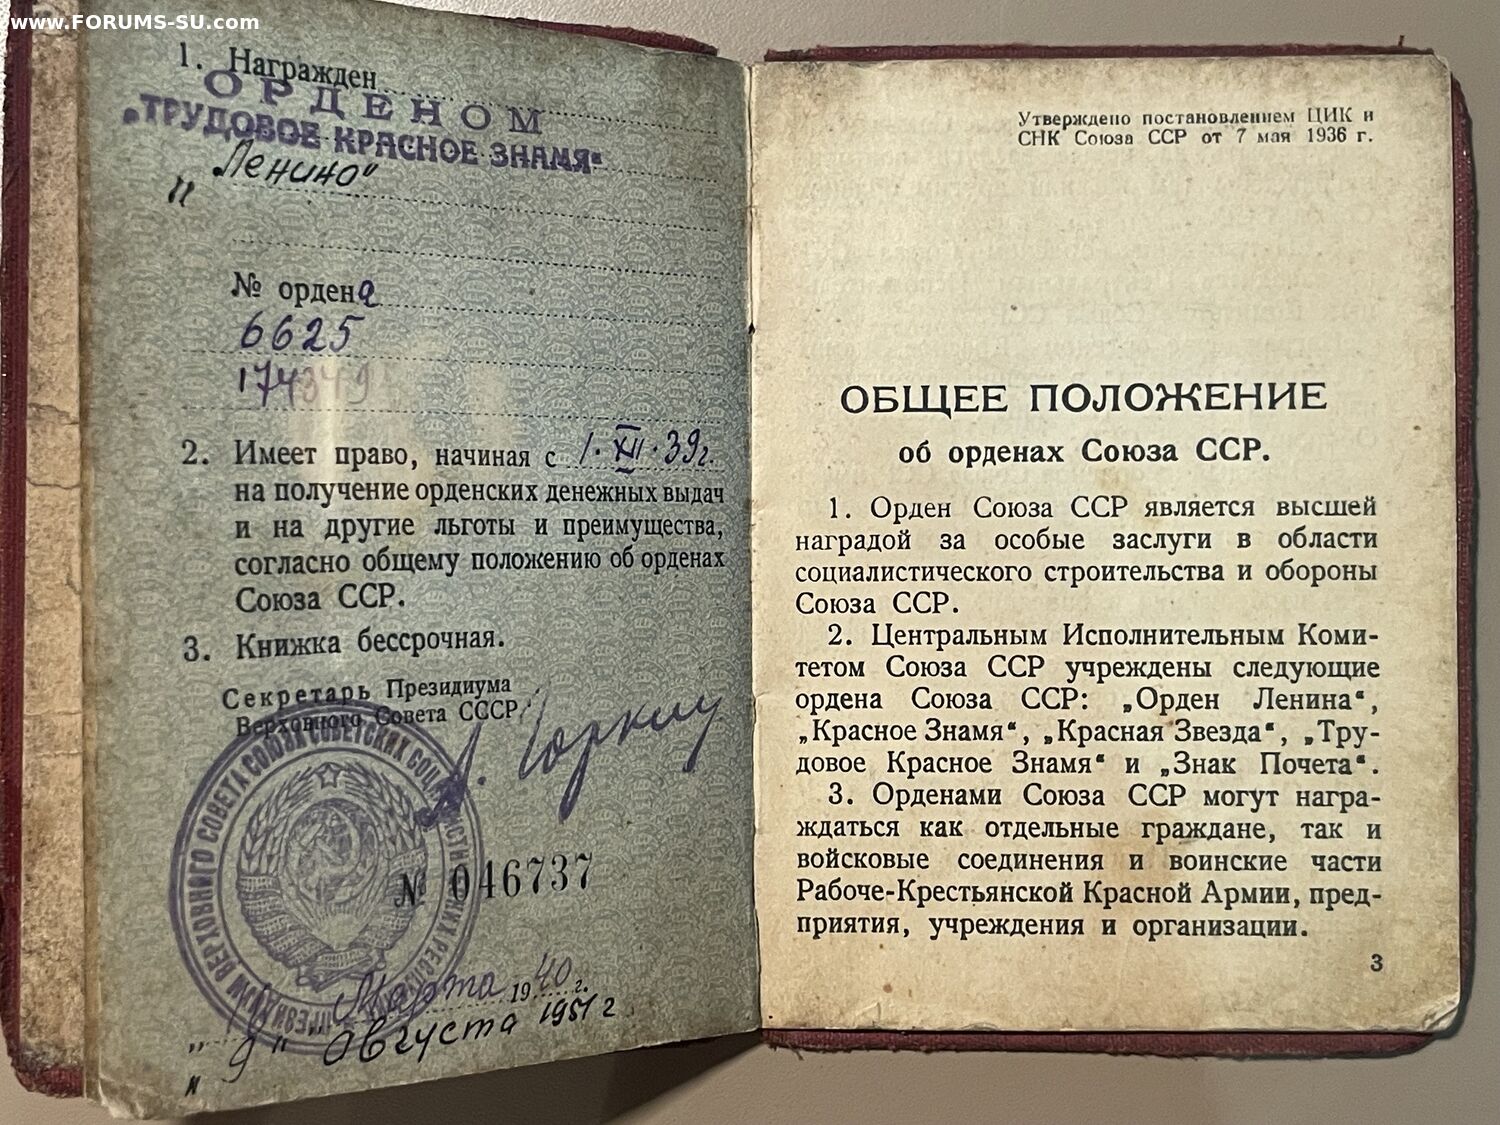 www.FORUMS-SU.com
1. Награжден
ОРДЕНОМ
„ТРУДОВОЕ КРАСНОЕ ЗНАМЯ“
„Ленина"
№ ордена
6625
174349
2. Имеет право, начиная с 1.XII.39г.
на получение орденских денежных выдач
и на другие льготы и преимущества,
согласно общему положению об орденах
Союза ССР.
3. Книжка бессрочная.
Секретарь Президиума
Верховного Совета СССР
А. Горкин
№ 046737
Марта 1940 г.
"9" Августа 1951 г
Утверждено постановлением ЦИК и
СНК Союза ССР от 7 мая 1936 г.
ОБЩЕЕ ПОЛОЖЕНИЕ
об орденах Союза ССР.
1. Орден Союза ССР является высшей
наградой за особые заслуги в области
социалистического строительства и обороны
Союза ССР.
2. Центральным Исполнительным Коми-
тетом Союза ССР учреждены следующие
ордена Союза ССР: „Орден Ленина“,
„Красное Знамя“, „Красная Звезда“, „Тру-
довое Красное Знамя“ и „Знак Почета“.
3. Орденами Союза ССР могут награ-
ждаться как отдельные граждане, так и
войсковые соединения и воинские части
Рабоче-Крестьянской Красной Армии, пред-
приятия, учреждения и организации.
3